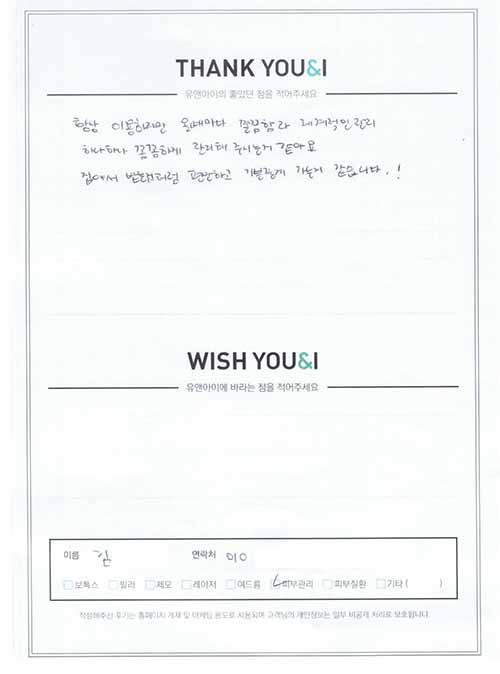 THANK YOU&I
유앤아이의 좋았던 점을 적어주세요
항상 이용하지만 올때마다 깔끔함과 체계적인관리
하나하나 꼼꼼하게 관리해 주시는거 같아요
집에서 받는것처럼 편안하고 기분좋게 가는거 같습니다.!
WISH YOU&I
유앤아이에 바라는 점을 적어주세요
이름 김 연락처 010
보톡스 필러 제모 레이저 여드름 피부관리 피부질환 기타 ( )
작성해주신 후기는 홈페이지 게재 및 마케팅 용도로 사용되며 고객님의 개인정보는 일부 비공개 처리로 보호됩니다.